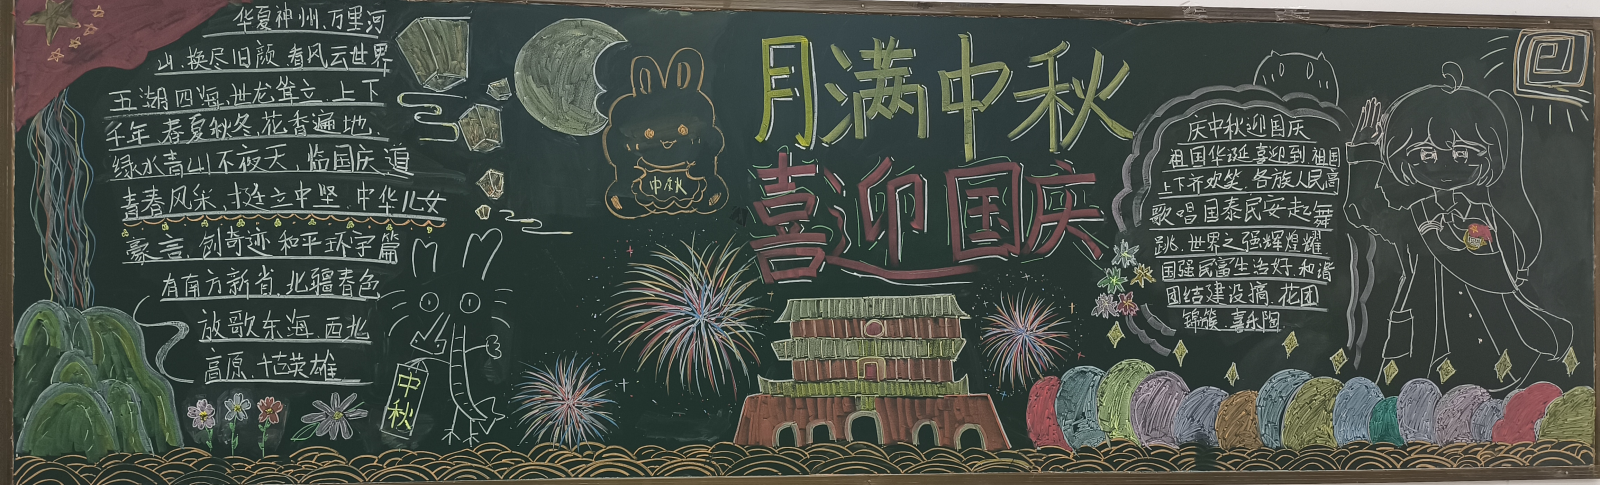 华夏神州、万里河
山、换尽旧颜、春风云世界
五湖四海、世龙耸立、上下
千年、春夏秋冬、花香遍地、
绿水青山不夜天、临国庆道
青春风采、挺立中坚、中华儿女
豪言、创奇迹和平环宇篇
有南方新肖、北疆春色
放歌东海、西北
高原、英雄
中秋
中秋
月满中秋
喜迎国庆
庆中秋迎国庆
祖国华诞喜迎到祖国
上下齐欢笑、各族人民高
歌唱国泰民安起舞
跳、世界之强辉煌耀
国强民富生活好、和谐
团结建设搞、花团
锦簇、喜乐陶